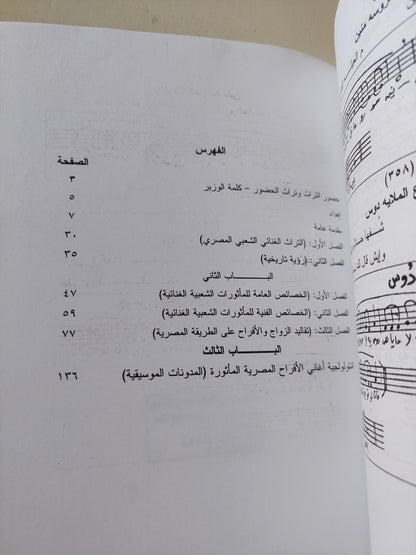 الفهرس
الصفحة
حضور التراث وتراث الحضور - كلمة الوزير ٣
إهداء ٥
مقدمة عامة ٧
الفصل الأول: (التراث الغنائي الشعبي المصري) ٣٠
الفصل الثاني: (رؤية تاريخية) ٣٥
البـــاب الثاني
الفصل الأول: (الخصائص العامة للمأثورات الشعبية الغنائية) ٤٧
الفصل الثاني: (الخصائص الفنية للمأثورات الشعبية الغنائية) ٥٩
الفصل الثالث: (تقاليد الزواج والأفراح على الطريقة المصرية) ٧٧
البـــاب الثالث
انثولوجية أغاني الأفراح المصرية المأثورة (المدونات الموسيقية) ١٣٦
(٣٥٨)
ع الملايه دوس